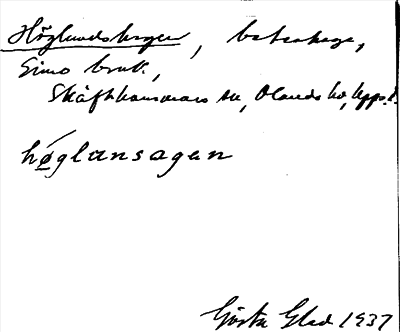 Höglundshagen, beteshage,
Gimo bruk,
Skäfthammars sn, Olands hd, Upps.l.
høglansagen
Gösta Glad 1937